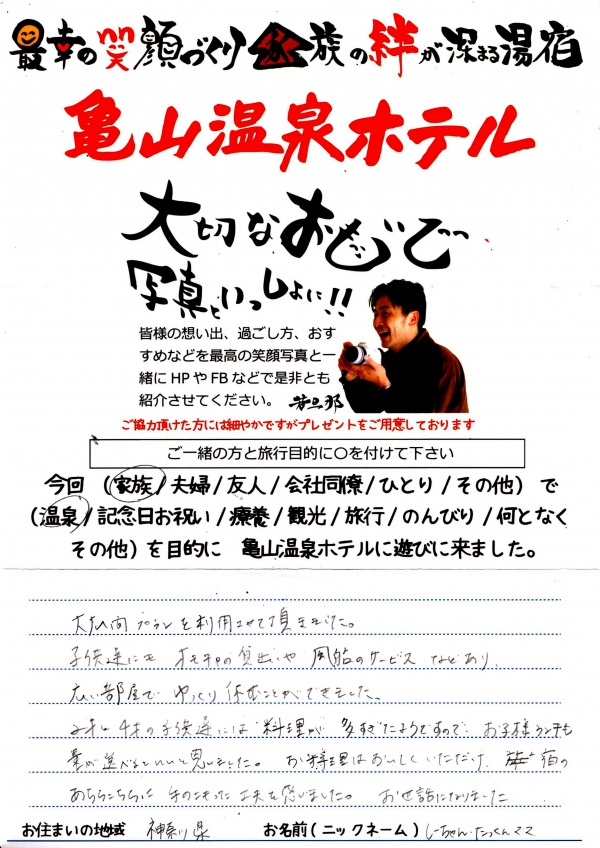 最幸の笑顔づくり 家族の絆が深まる湯宿
亀山温泉ホテル
大切なおもいで
写真といっしょに!!
皆様の想い出、過ごし方、おす
すめなどを最高の笑顔写真と一
緒にHPやFBなどで是非とも
紹介させてください。 若旦那
ご協力頂けた方には細やかですがプレゼントをご用意しております
ご一緒の方と旅行目的に○を付けて下さい
今回 (家族/夫婦/友人/会社同僚/ひとり/その他) で
(温泉/記念日お祝い/療養/観光/旅行/のんびり/何となく
その他) を目的に 亀山温泉ホテルに遊びに来ました。
プランを利用させて頂きました。
子供達にも オモチャの貸出しや 風船のサービスなどあり
広い部屋で ゆっくり休むことができました。
2才と4才の子供達には 料理が 多すぎたようですので、お子様ランチも
量が選べるといいと思いました。 お料理はおいしくいただけ、 宿の
あちらこちらに 手のこもった工夫を感じました。 お世話になりました
お住まいの地域 神奈川県 お名前(ニックネーム) しーちゃん・たっくんママ